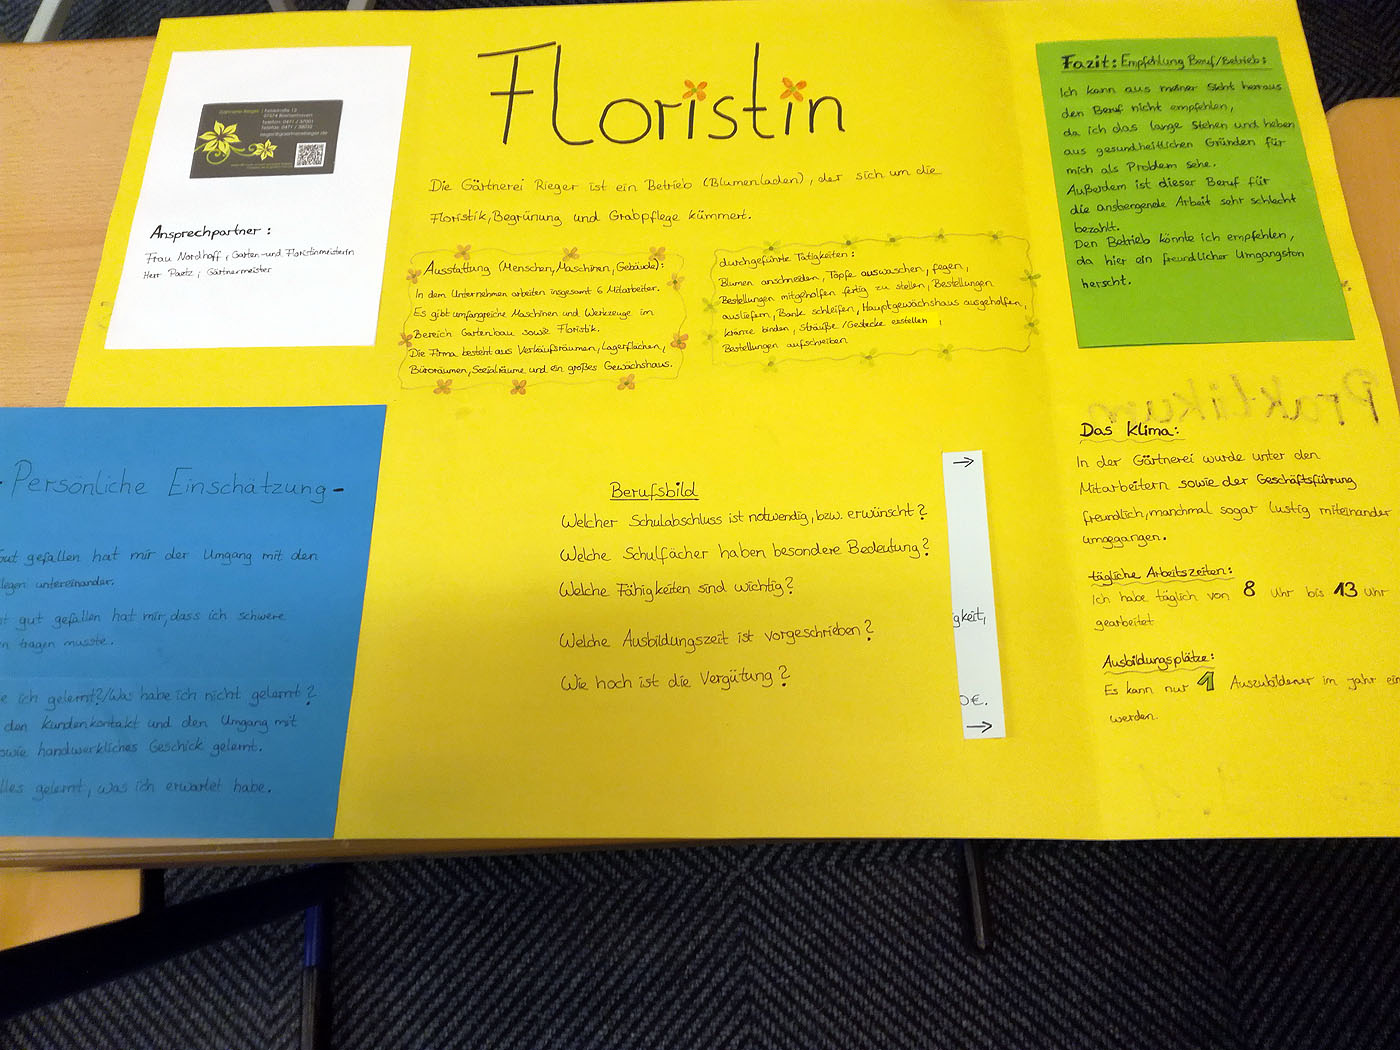 Floristin
Die Gärtnerei Rieger ist ein Betrieb (Blumenladen), der sich um die
Floristik, Begrünung und Grabpflege kümmert.
Gärtnerei Rieger
27574 Bremerhaven
Ansprechpartner:
Frau Nordhoff, Garten- und Floristinmeisterin
Herr Paetz, Gärtnermeister
Ausstattung (Menschen, Maschinen, Gebäude):
In dem Unternehmen arbeiten insgesamt 6 Mitarbeiter.
Es gibt umfangreiche Maschinen und Werkzeuge im
Bereich Gartenbau sowie Floristik.
Die Firma besteht aus Verkaufsräumen, Lagerflächen,
Büroräumen, Sozialräume und ein großes Gewächshaus.
durchgeführte Tätigkeiten:
Blumen anschneiden, Töpfe auswaschen, fegen,
Bestellungen mitgeholfen fertig zu stellen, Bestellungen
ausliefern, Bank schleifen, Hauptgewächshaus ausgeholfen,
Kränze binden, Sträuße/Gestecke erstellen,
Bestellungen aufschreiben
Fazit: Empfehlung Beruf/Betrieb:
Ich kann aus meiner Sicht heraus
den Beruf nicht empfehlen,
da ich das lange Stehen und heben
aus gesundheitlichen Gründen für
mich als Problem sehe.
Außerdem ist dieser Beruf für
die ansbergende Arbeit sehr schlecht
bezahlt.
Den Betrieb könnte ich empfehlen,
da hier ein freundlicher Umgangston
herscht.
- Persönliche Einschätzung -
gut gefallen hat mir der Umgang mit den
legen untereinander.
t gut gefallen hat mir, dass ich schwere
n tragen musste.
e ich gelernt?/Was habe ich nicht gelernt?
den Kundenkontakt und den Umgang mit
owie handwerkliches Geschick gelernt.
lles gelernt, was ich erwartet habe.
Berufsbild
Welcher Schulabschluss ist notwendig, bzw. erwünscht?
Welche Schulfächer haben besondere Bedeutung?
Welche Fähigkeiten sind wichtig?
Welche Ausbildungszeit ist vorgeschrieben?
Wie hoch ist die Vergütung?
→
gkeit,
0€.
→
Praktikum
Das Klima:
In der Gärtnerei wurde unter den
Mitarbeitern sowie der Geschäftsführung
freundlich, manchmal sogar lustig miteinander
umgegangen.
tägliche Arbeitszeiten:
Ich habe täglich von 8 Uhr bis 13 Uhr
gearbeitet
Ausbildungsplätze:
Es kann nur 1 Auszubildener im jahr ein
werden.